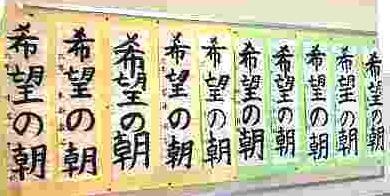 希望の朝
希望の朝
希望の朝
希望の朝
希望の朝
希望の朝
希望の朝
希望の朝
希望の朝
希望の朝